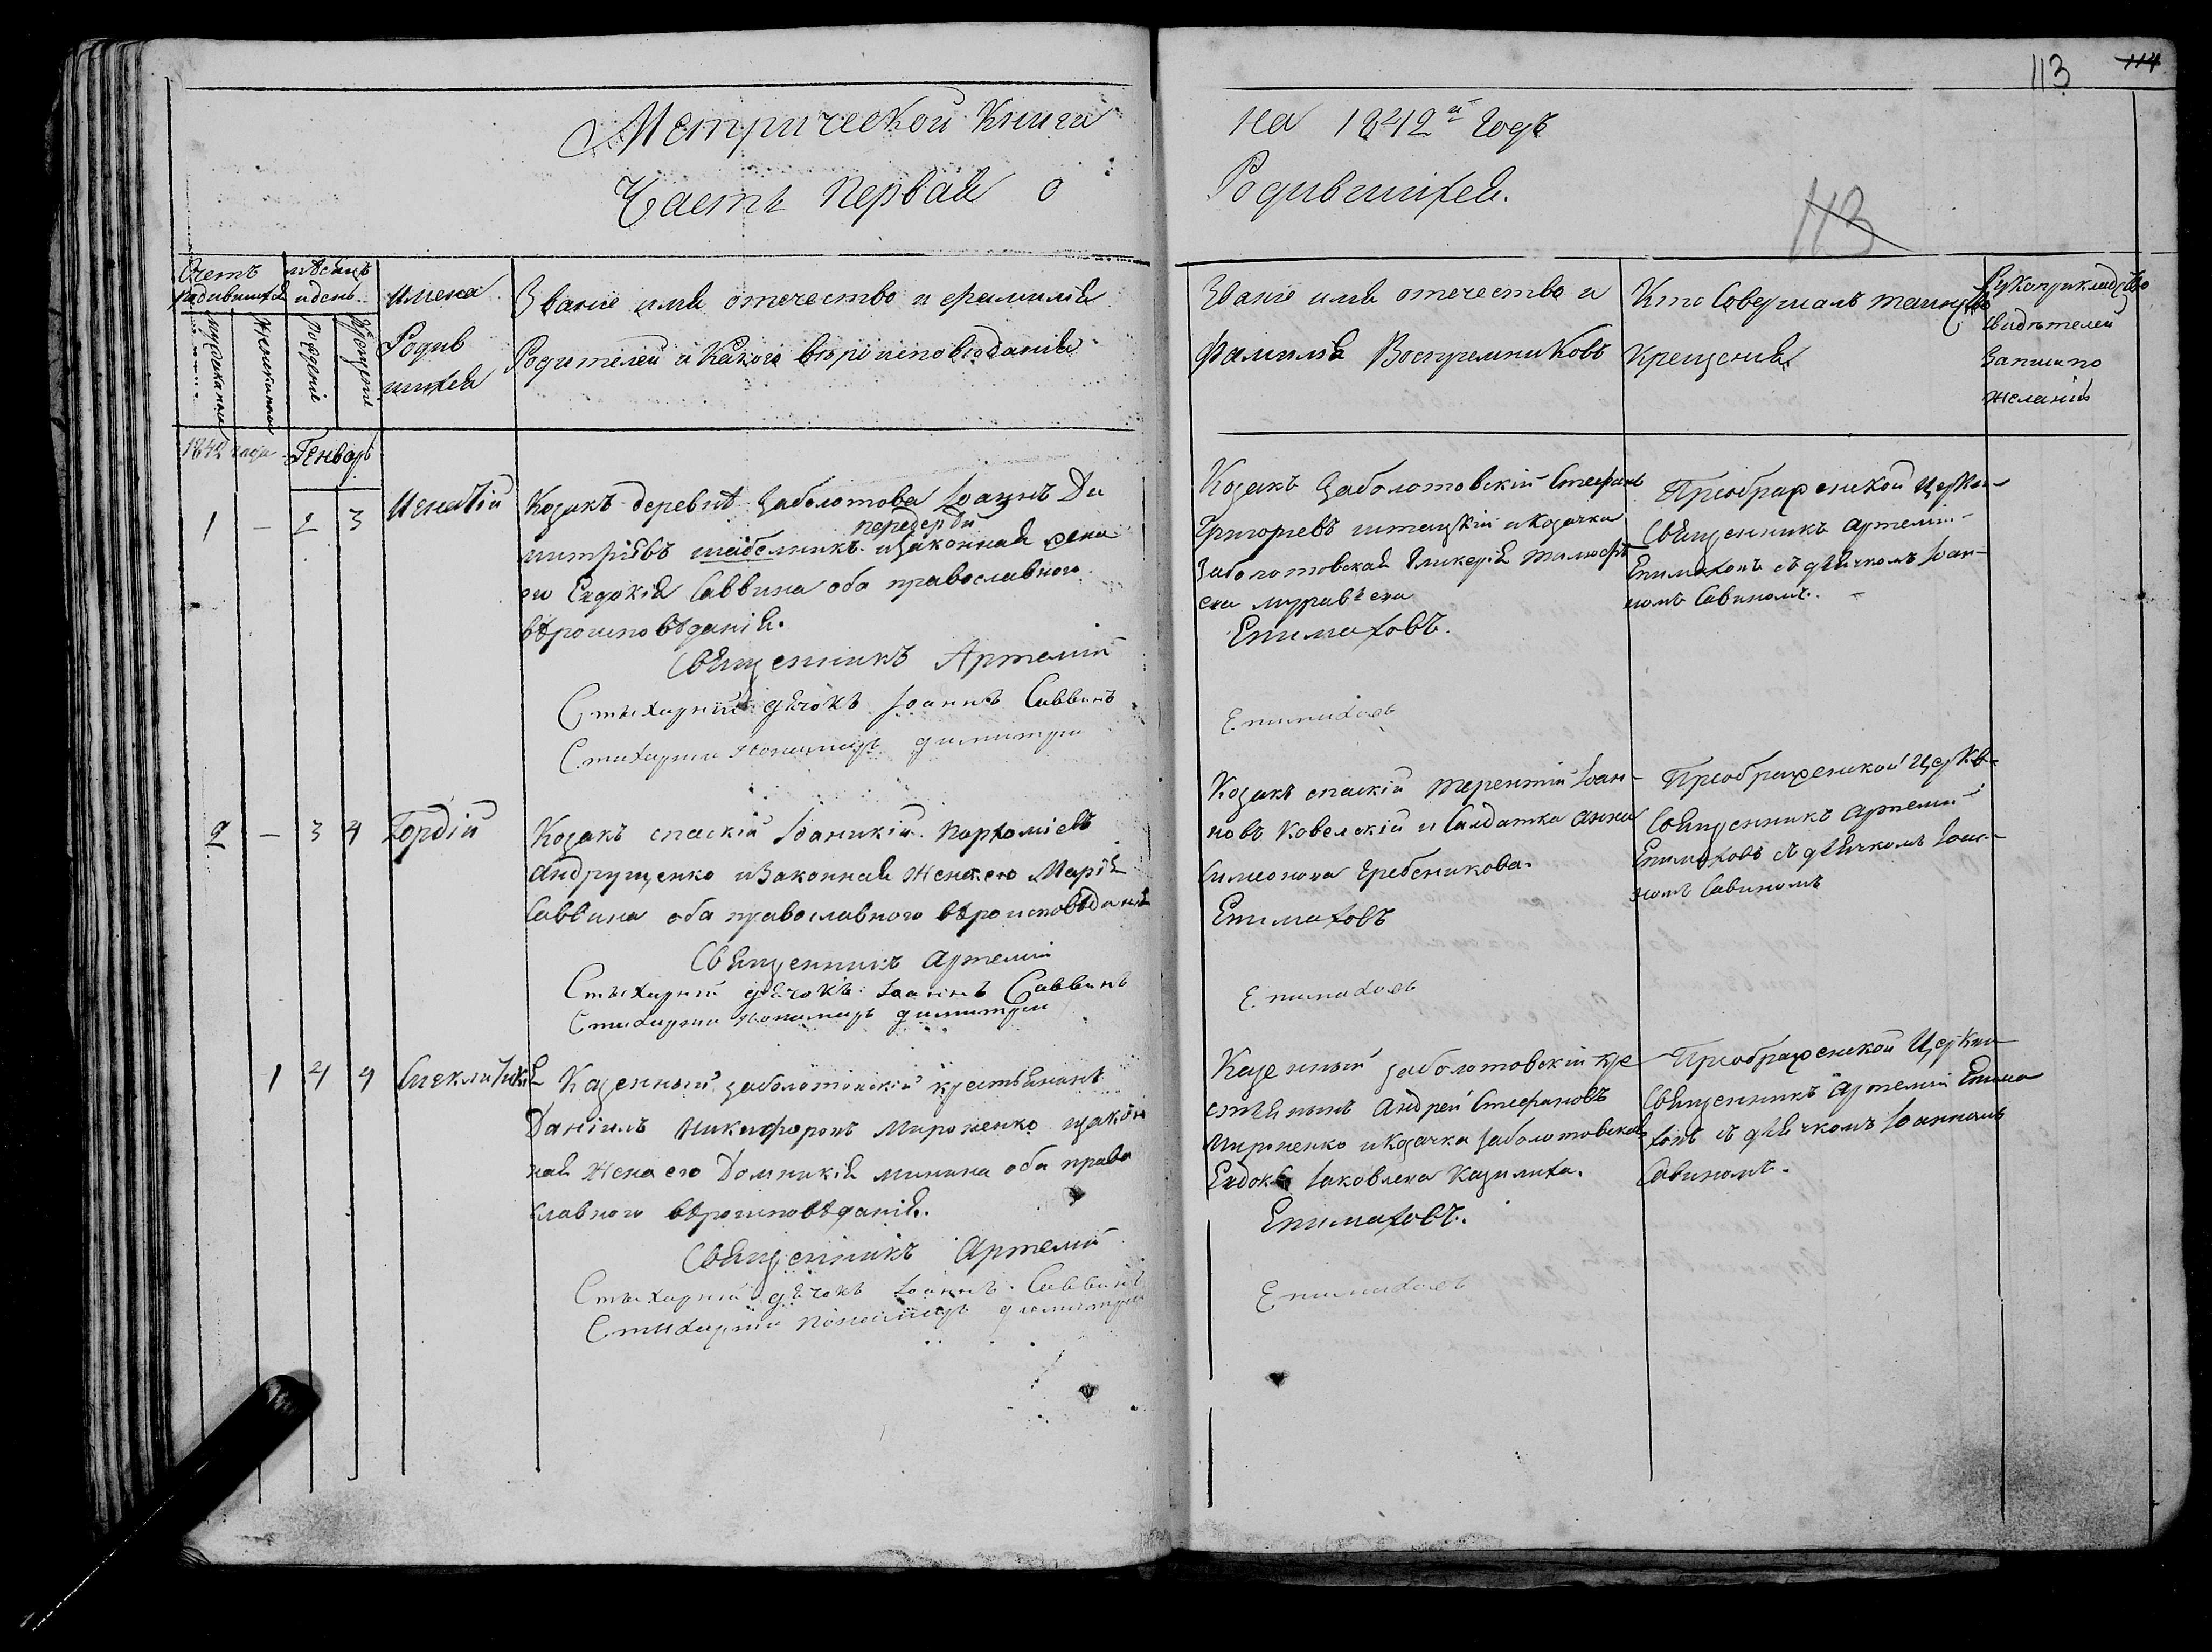 113 114
Метрической Книги
на 1842й годъ
Часть первая о
Родившихся.
113
Счетъ родившихся
мѣсяцъ и день
мужеска пола
женска пола
рожденіе
крещеніе
Имена
Родив
шихся
Званіе имя отечество и фамилія
Родителей и какого вѣроисповѣданія
Званіе имя отечество и
Фамилія Воспремниковъ
Кто Совершалъ таинство
Крещенія
Рукоприкладство
свидѣтелей
записи по
желанію
1842 года
Генварь
1 – 2 3
Игнатій
Козакъ деревнѣ Заболотова Іоаннъ Ди
митріевъ изаконная жена
его Евдокія Саввина оба православного
вѣроисповѣданія.
Священникъ Артемій
Стыхарный дячокъ Іоаннъ Саввинъ
Стихарный Пономарь Димитрій
Козакъ Заболотовскій Стефанъ
Григорьевъ и козачка
Заболотовская Гликерія
Епимаховъ.
Епимаховъ
Преображенской Церкви
Священникъ Артемій
Епимаховъ съ дячкомъ Іоан-
номъ Савиномъ.
2 – 3 4
Гордій
Козакъ спаскій Іоаникій Пархоміевъ
Андрущенко изаконная Жена его Марія
Саввина оба православного вѣроисповѣданія
Священникъ Артемій
Стыхарный дячокъ Іоаннъ Саввинъ
Стихарный Пономарь Димитрій
Козакъ спаскій Терентій Іоан-
новъ Ковелскій и Салдатка Анна
Симеонова Гребеникова.
Епимаховъ
Епимаховъ
Преображенской Церкви
Священникъ Артемій
Епимаховъ съ дячкомъ Іоан-
номъ Савиномъ
1 4 9
Синклитикія
Казенный заболотовскій крестьянинъ
Даніилъ Никифоровъ Мироненко изакон
ная Жена его Домникія Минина оба право
славного вѣроисповѣданія.
Священникъ Артемій
Стыхарный дячокъ Іоаннъ Саввинъ
Стихарный Пономарь Димитрій
Казенный заболотовскій кре
стянинъ Андрей Стефановъ
Мироненко и Козачка заболотовская
Евдокія Іаковлева
Епимаховъ.
Епимаховъ
Преображенской Церкви
Священникъ Артемій Епима
ховъ съ дячкомъ Іоанномъ
Савиномъ.